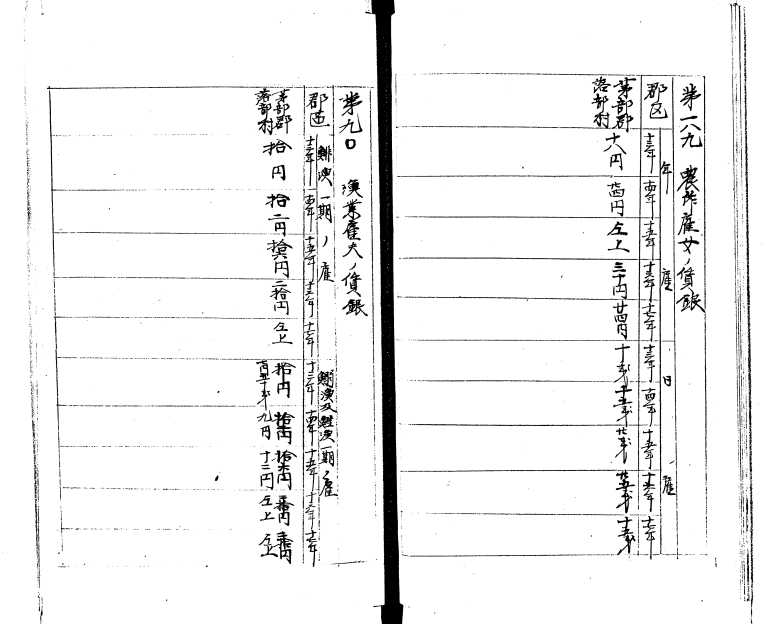 第一八九 農作雇女ノ賃銀
郡区 年雇 日雇
十三年 十四年 十五年 十六年 十七年 十三年 十四年 十五年 十六年 十七年
茅部郡
落部村
十八円 廿四円 仝上 三十円 廿四円 十銭 十五銭 廿銭 廿五銭 十五銭
第九〇 漁業雇夫ノ賃銀
郡区 鯡漁一期ノ雇
十三年 十四年 十五年 十六年 十七年 十三年 十四年 十五年 十六年 十七年
茅部郡
落部村
拾円 拾二円 拾六円 二拾円 仝上
拾円
九円 十三円 仝上 仝上